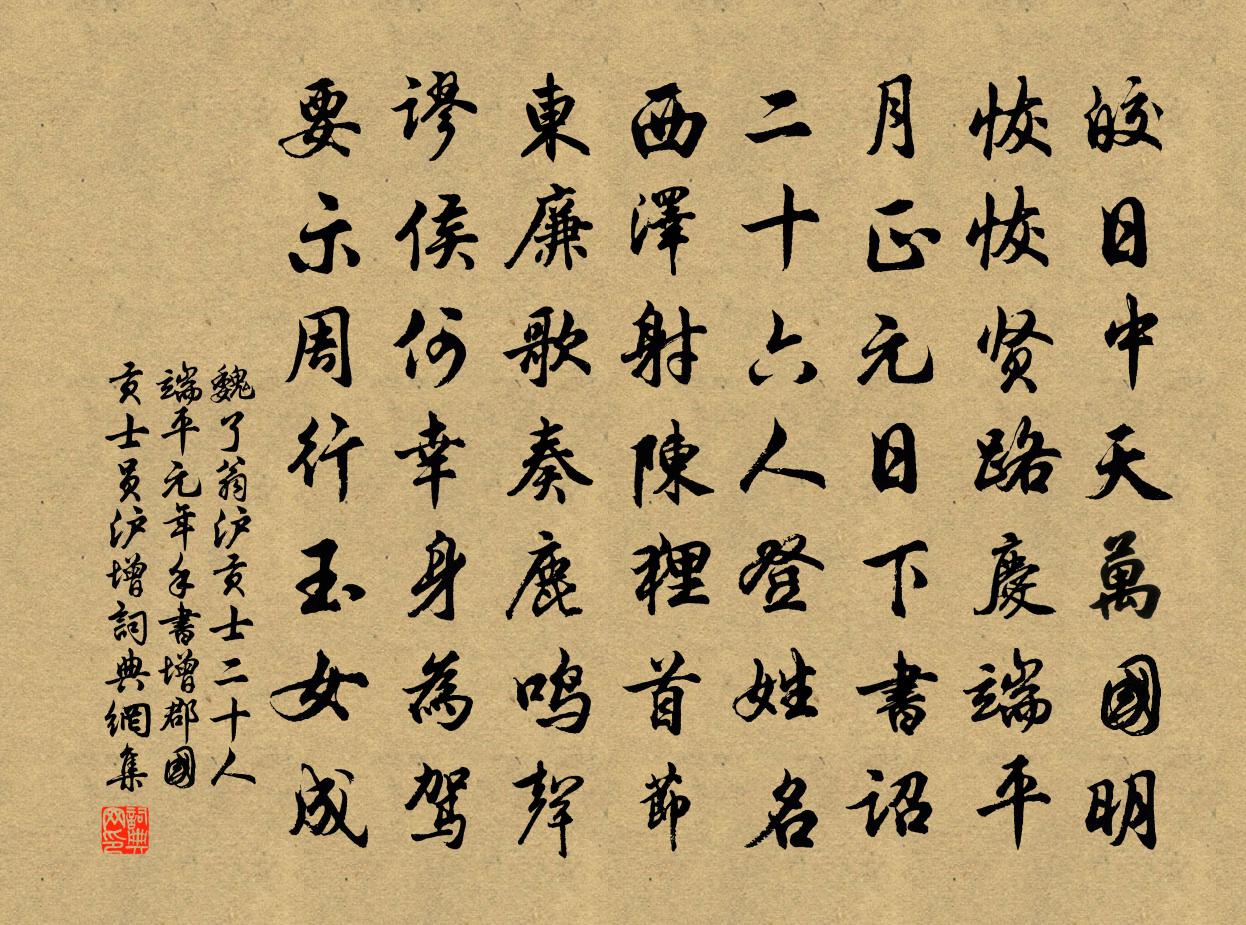 皎日中天萬國明
恢恢贤路慶端平
月正元日下書詔
二十六人登姓名
西澤射陳狸首節
東廉歌奏鹿鳴聲
謬侯何幸身為駕
要示周行玉女成
魏了翁泸贡士二十人
端平元年手書增郡國
贡士员泸增詞典網集
詞典网印